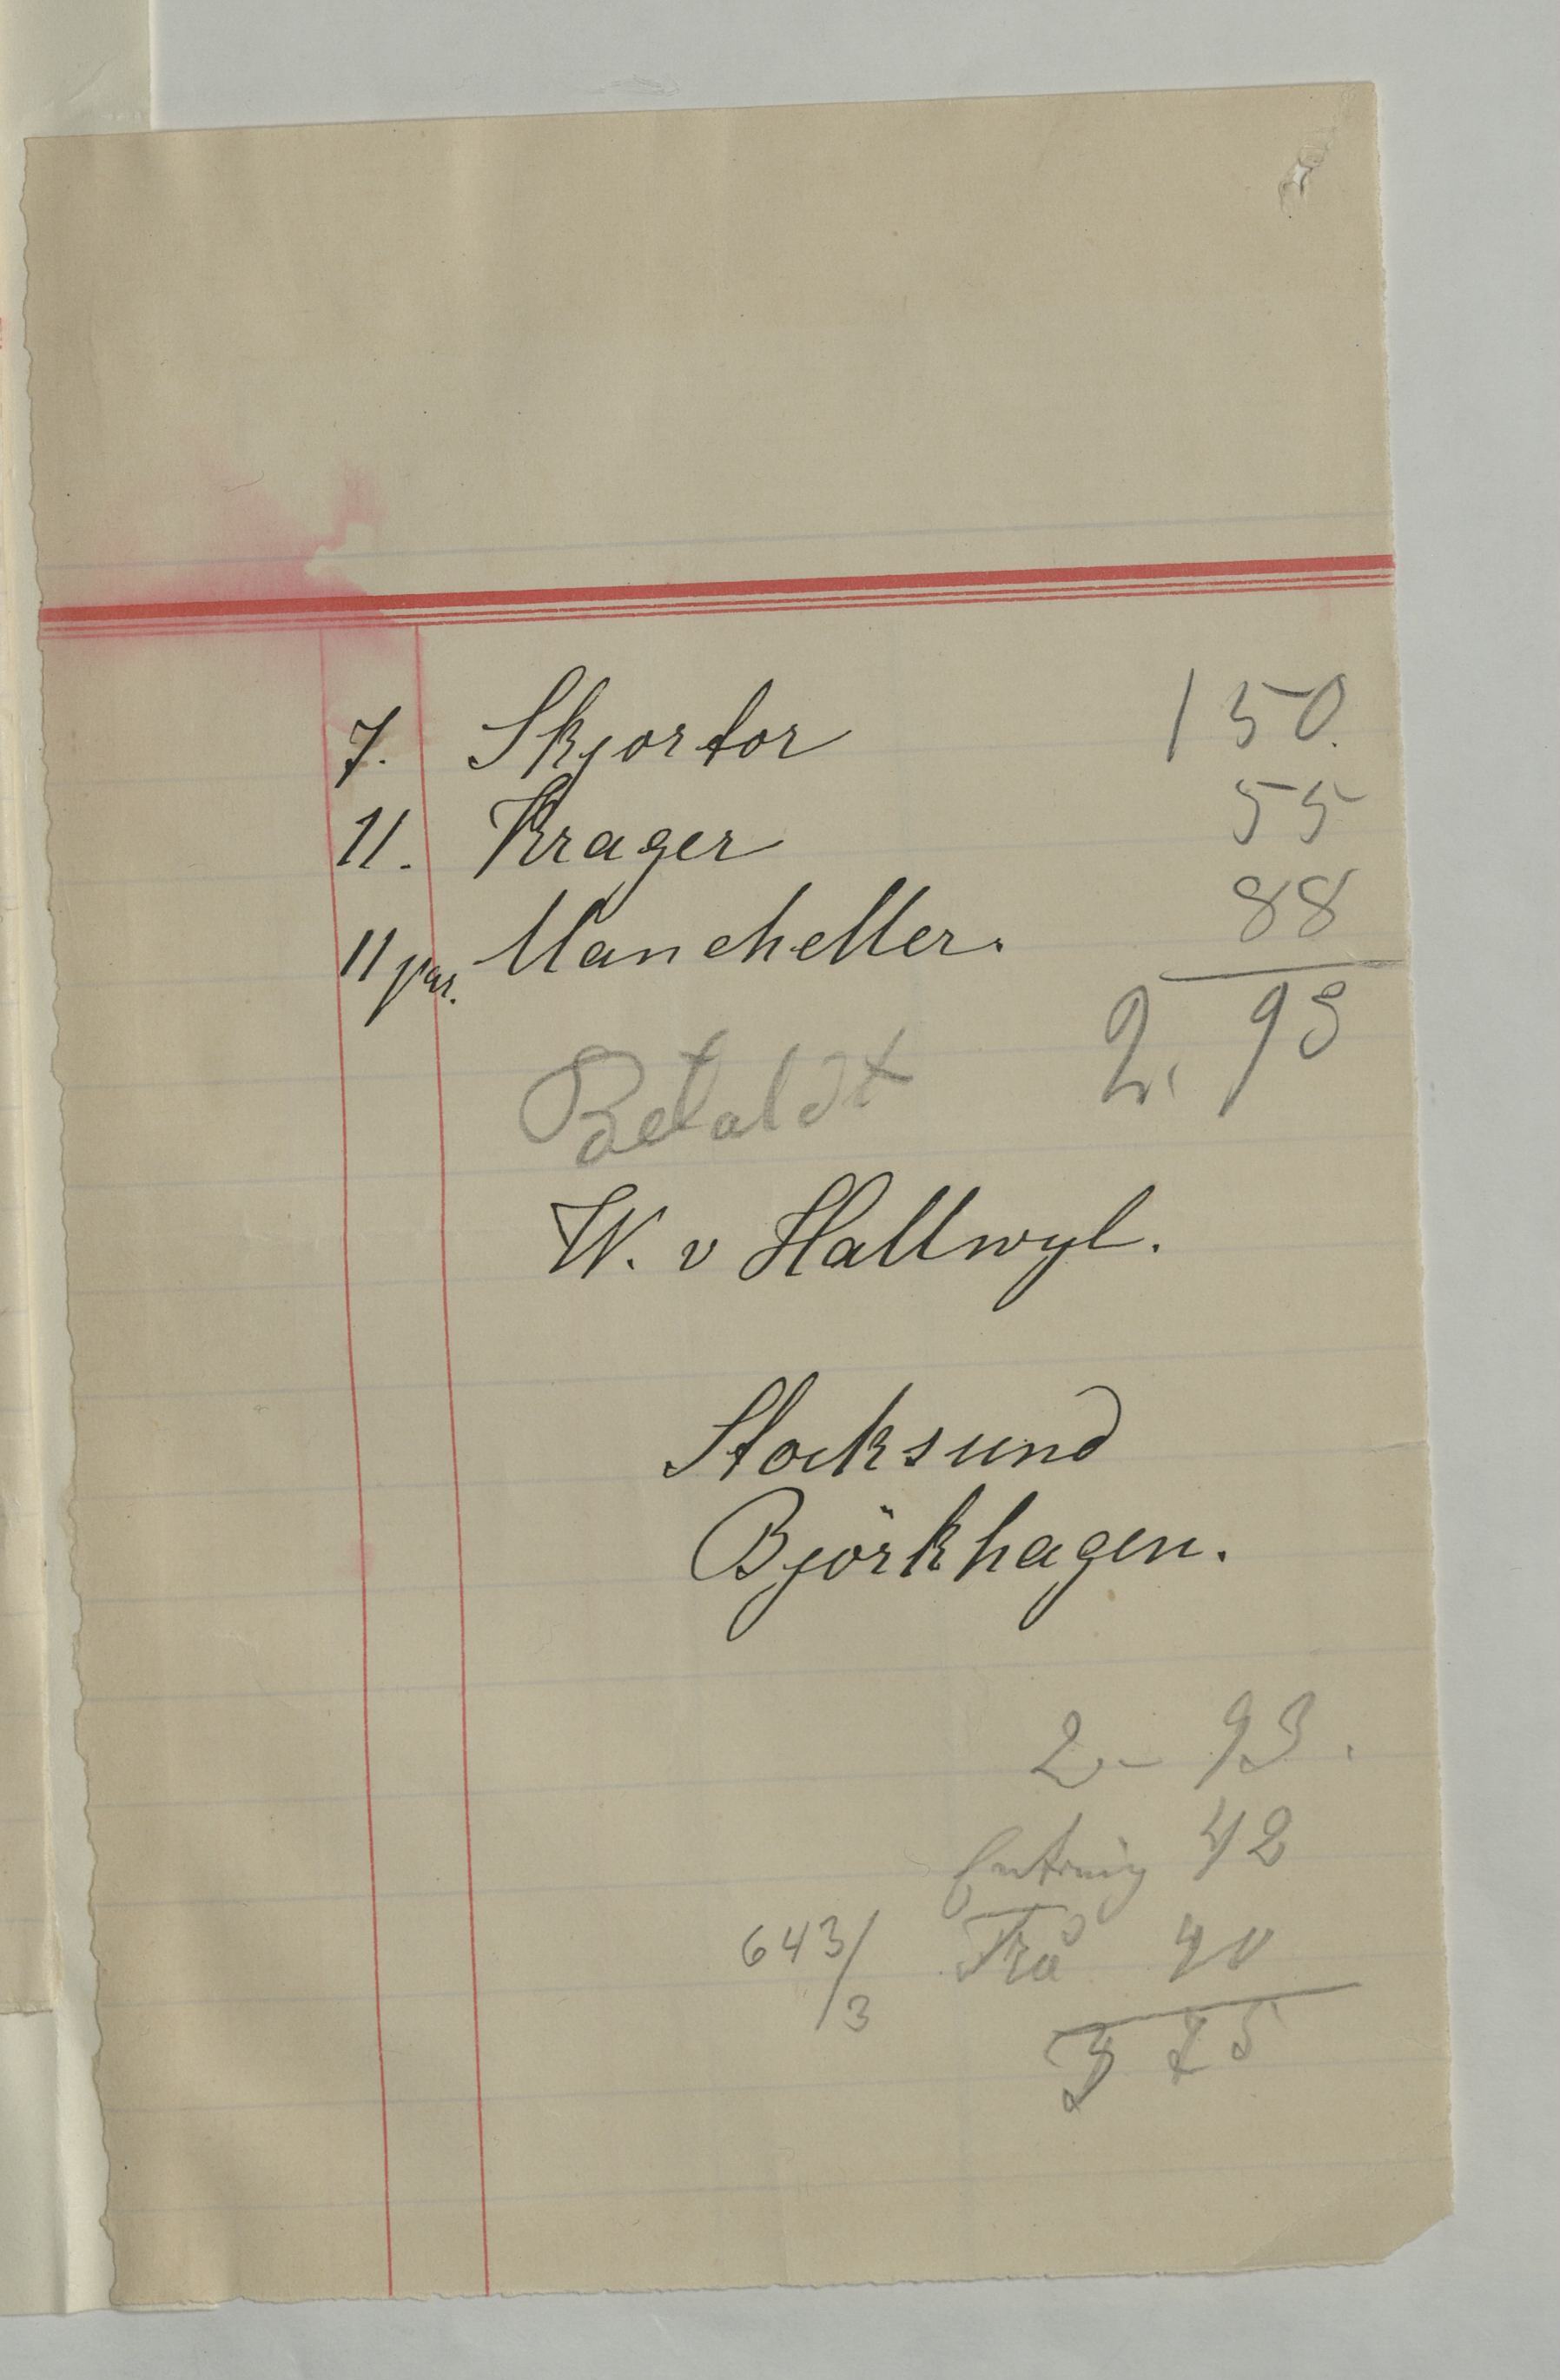 7. Skjortor 1 50.
11. Krager 55
11 par. Manchetter. 88
2. 93
Betaldt
W. v Hallwyl.
Stocksund
Björkhagen.
2 - 93.
42
643/3 Trå 40
3 75